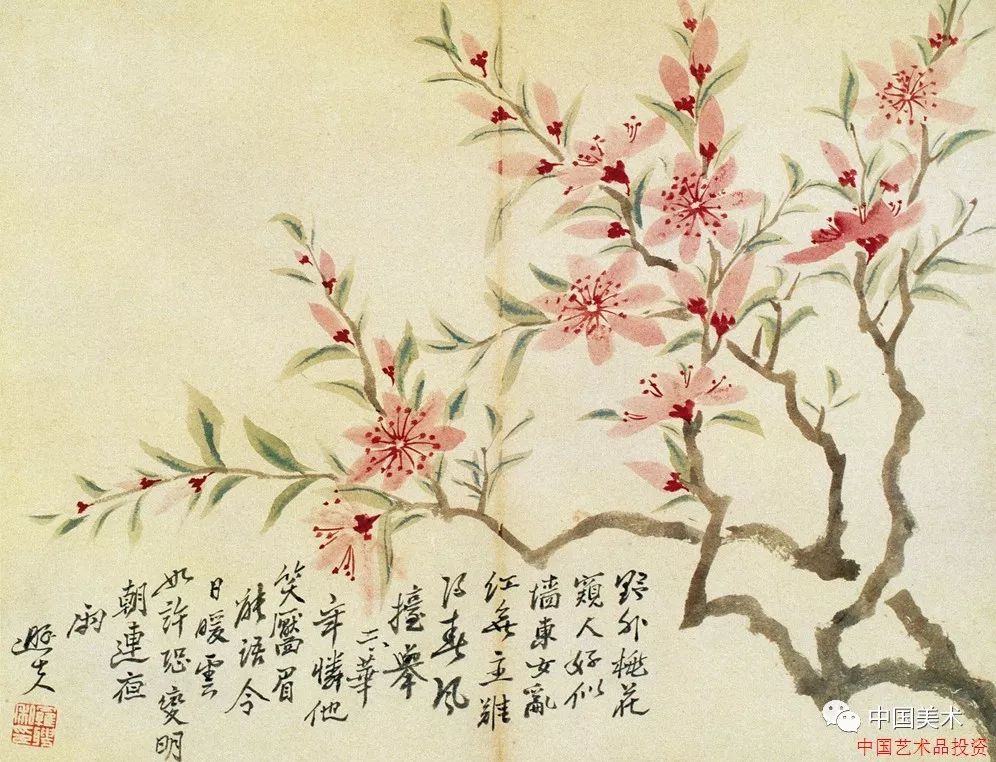 野外桃花
窺人好似
墻東女亂
紅無主難
得春風
擡舉
二八華
年憐他
笑靨眉
能語今
日暖雲
如許恐變明
朝連夜
雨
中国美术
中国艺术品投资